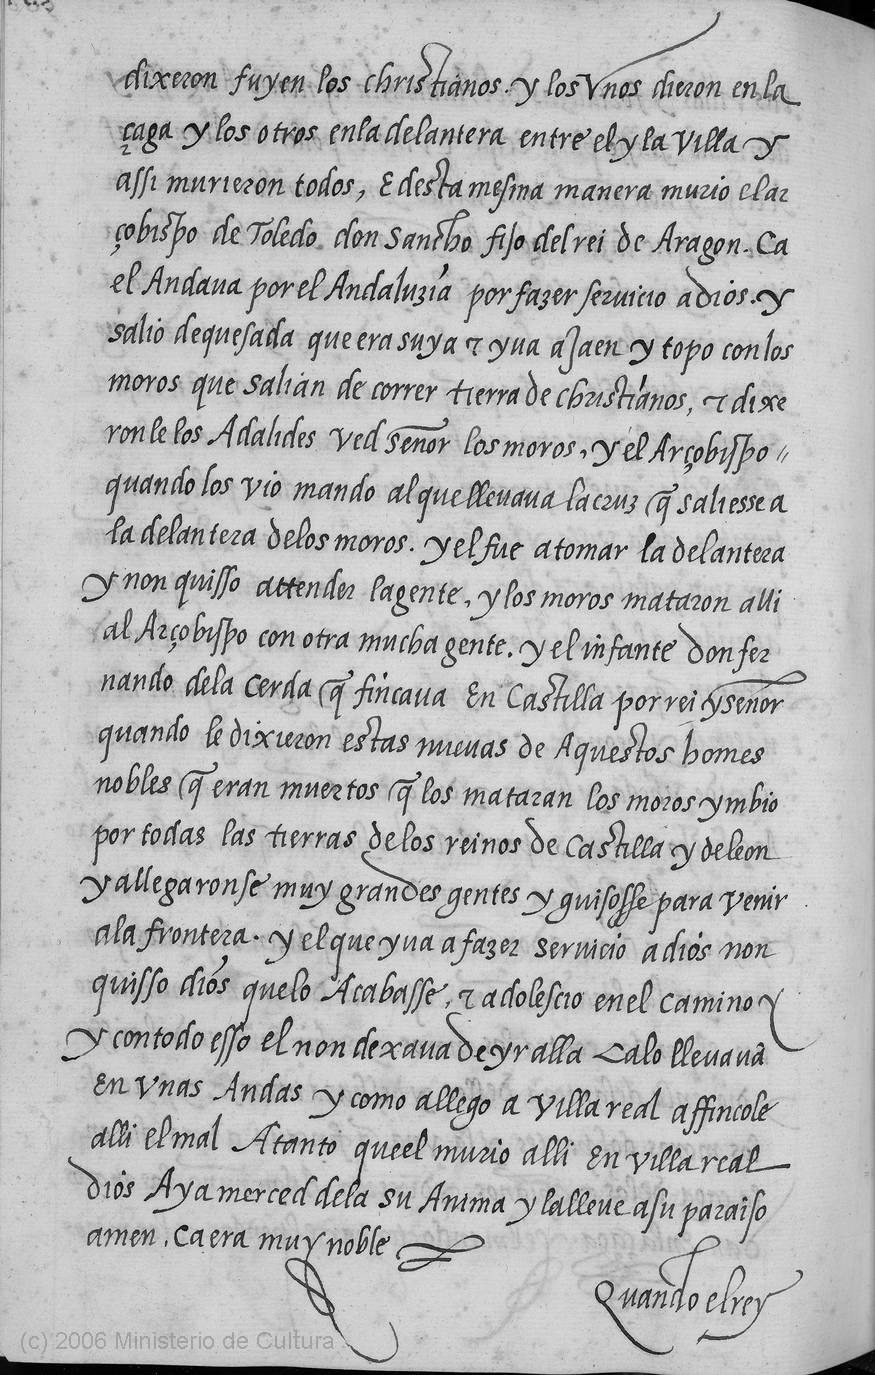 dixeron fuyen los christianos. y los Vnos dieron en la
çaga y los otros en la delantera entre el y la Villa y
assi murieron todos, E desta mesma manera murio el ar
çobispo de Toledo don Sancho fijo del rei de Aragon. Ca
el Andaua por el Andaluzia por fazer seruicio a dios. y
salio de quesada que era suya & yua a Jaen y topo con los
moros que salian de correr tierra de christianos, & dixe
ronle los Adalides Ved Señor los moros, y el Arçobispo //
quando los vio mando al que lleuaua la cruz q̃ saliesse a
la delantera de los moros. y el fue a tomar la delantera
y non quisso attender la gente, y los moros mataron alli
al Arçobispo con otra mucha gente. y el infante don fer
nando de la Cerda q̃ fincaua En Castilla por rei y señor
quando le dixieron estas nueuas de Aquestos homes
nobles q̃ eran muertos q̃ los mataran los moros ymbio
por todas las tierras de los reinos de Castilla y de leon
y allegaronse muy grandes gentes y guisosse para venir
a la frontera. y el que yua a fazer seruicio a dios non
quisso dios que lo Acabasse, & adolescio en el camino y
y con todo esso el non dexaua de yr alla Ca lo lleuauã
En Vnas Andas y como allego a Villa real affincole
alli el mal Atanto que el murio alli En villa real
dios Aya merced de la su Anima y la lleue a su paraiso
amen. Ca era muy noble
Quando el rey
(c) 2006 Ministerio de Cultura